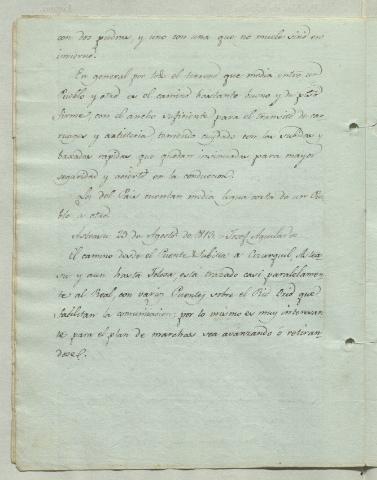 con dos piedras y uno con una que no muele sino en
imierno.
En general por todo el terreno que media entre un
Pueblo y otro es el camino bastante bueno y de piso
firme, con el ancho suficiente para el transito de car
ruages y artilleria teniendo cuydado con las subidas y
baxadas rapidas que quedan insinuadas para mayor
seguridad y acierto en la conduccion.
Los del Pais cuentan media legua corta de un Pue
blo a otro.
Asteasu 29 de Agosto de 1813. = Josef Aguilar
El camino desde el Puente à Cizurquil, Astea
su y aun hasta Tolosa, està trazado casi paralelamen
te al Real, con varios Puentes sobre el Rio Orio que
facilitan la comunicacion: por lo mismo es muy interesan
te para el plan de marchas sea avanzando o retiran
dose.